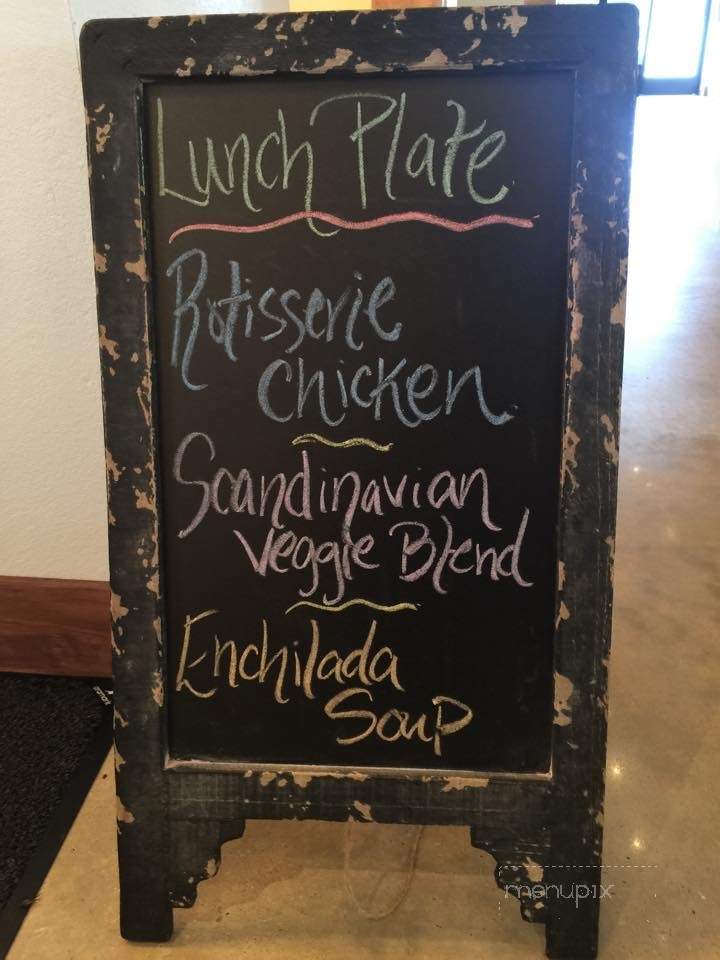 Lunch Plate
Rotisserie
Chicken
Scandinavian
Veggie Blend
Enchilada
Soup
menupix